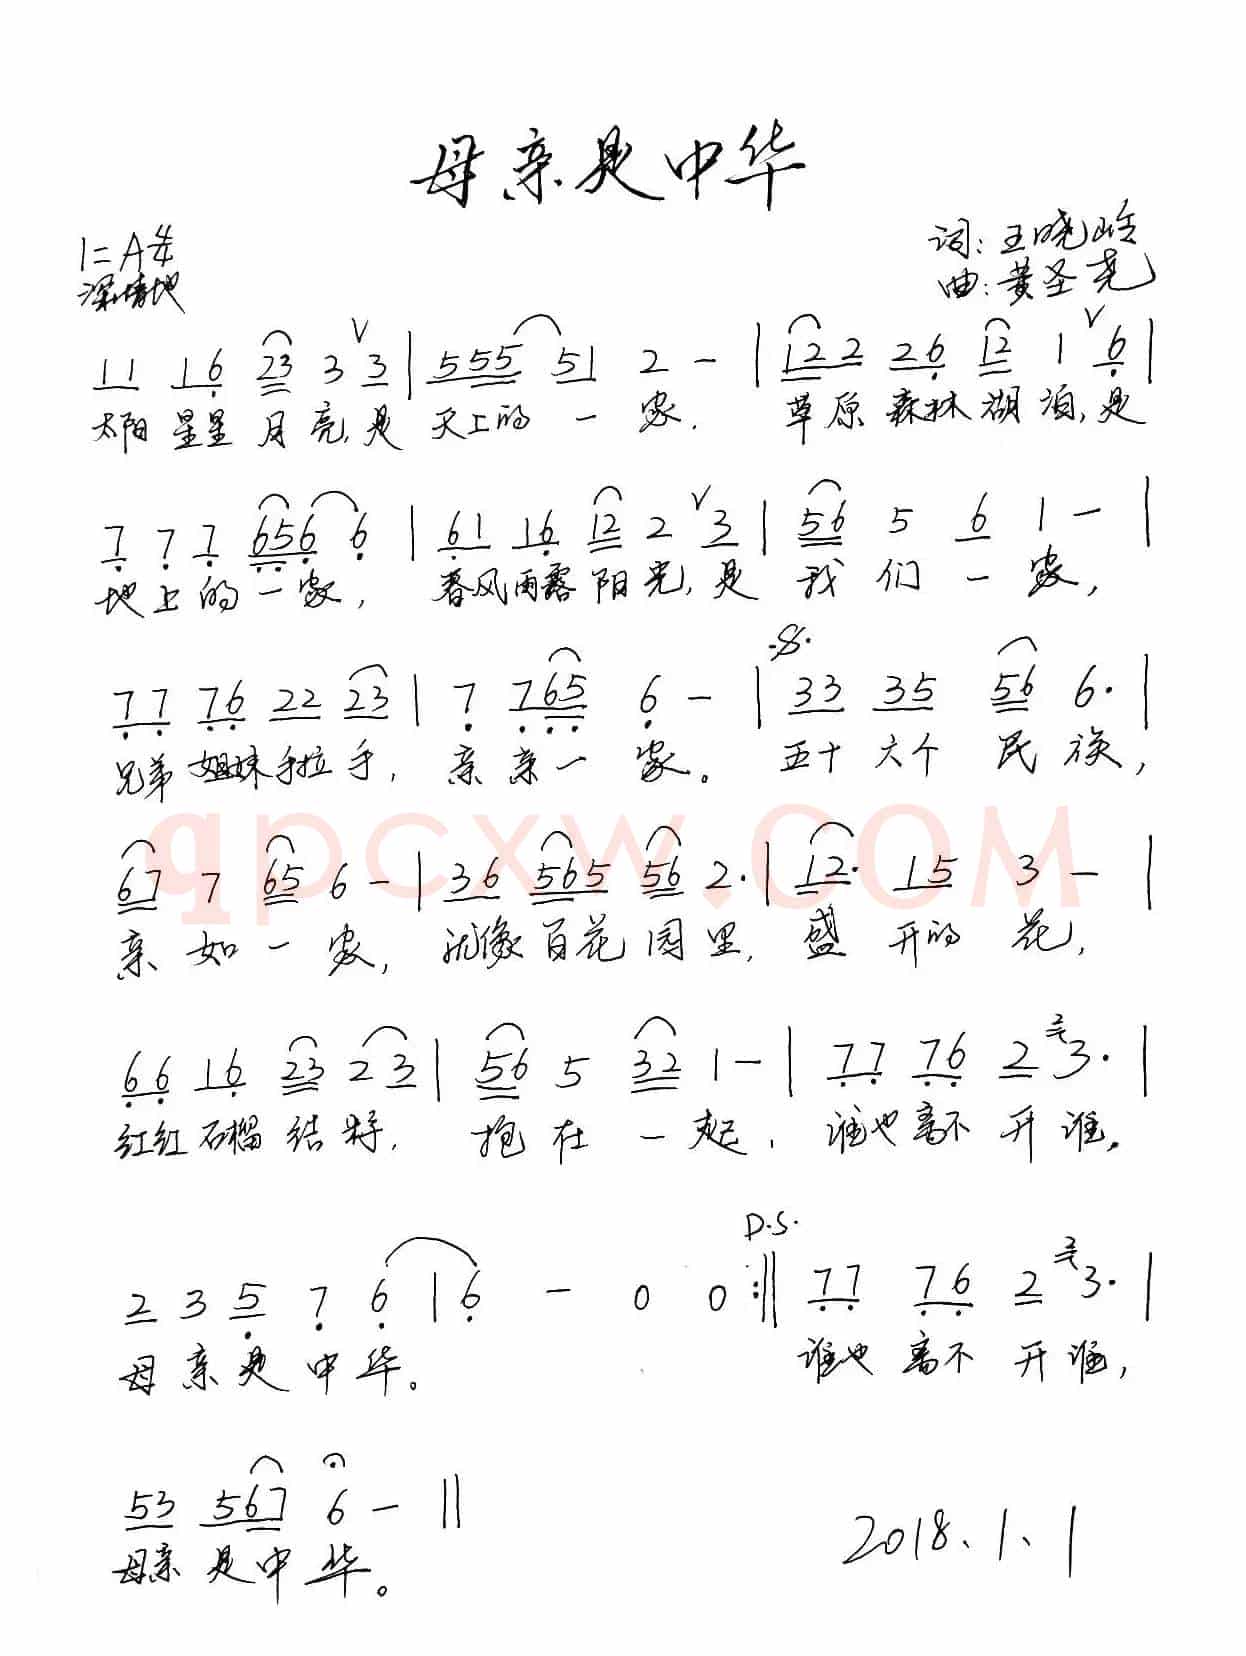 母亲是中华
1=A 4/4
深情地
词:王晓岭
曲:黄圣尧
11 16 23 3 3 | 555 51 2 - | 122 26 12 1 6 |
太阳星星月亮,是天上的一家. 草原森林湖泊,是
7 7 7 656 6 | 61 16 12 2 3 | 56 5 6 1 - |
地上的一家, 春风雨露阳光,是我们一家,
77 76 22 23 | 7 765 6 - | 33 35 56 6. |
兄弟姐妹手拉手, 亲亲一家。五十六个民族,
67 7 65 6 - | 36 565 56 2. | 12. 15 3 - |
亲如一家, 就像百花园里, 盛开的花,
66 16 23 23 | 56 5 32 1 - | 77 76 2 23. |
红红石榴结籽, 抱在一起, 谁也离不开谁.
D.S.
2 3 5 7 6 | 6 - 0 0 :|| 77 76 2 23. |
母亲是中华。 谁也离不开谁,
53 567 6 - ||
母亲是中华。
2018.1.1
qpcxw.COM